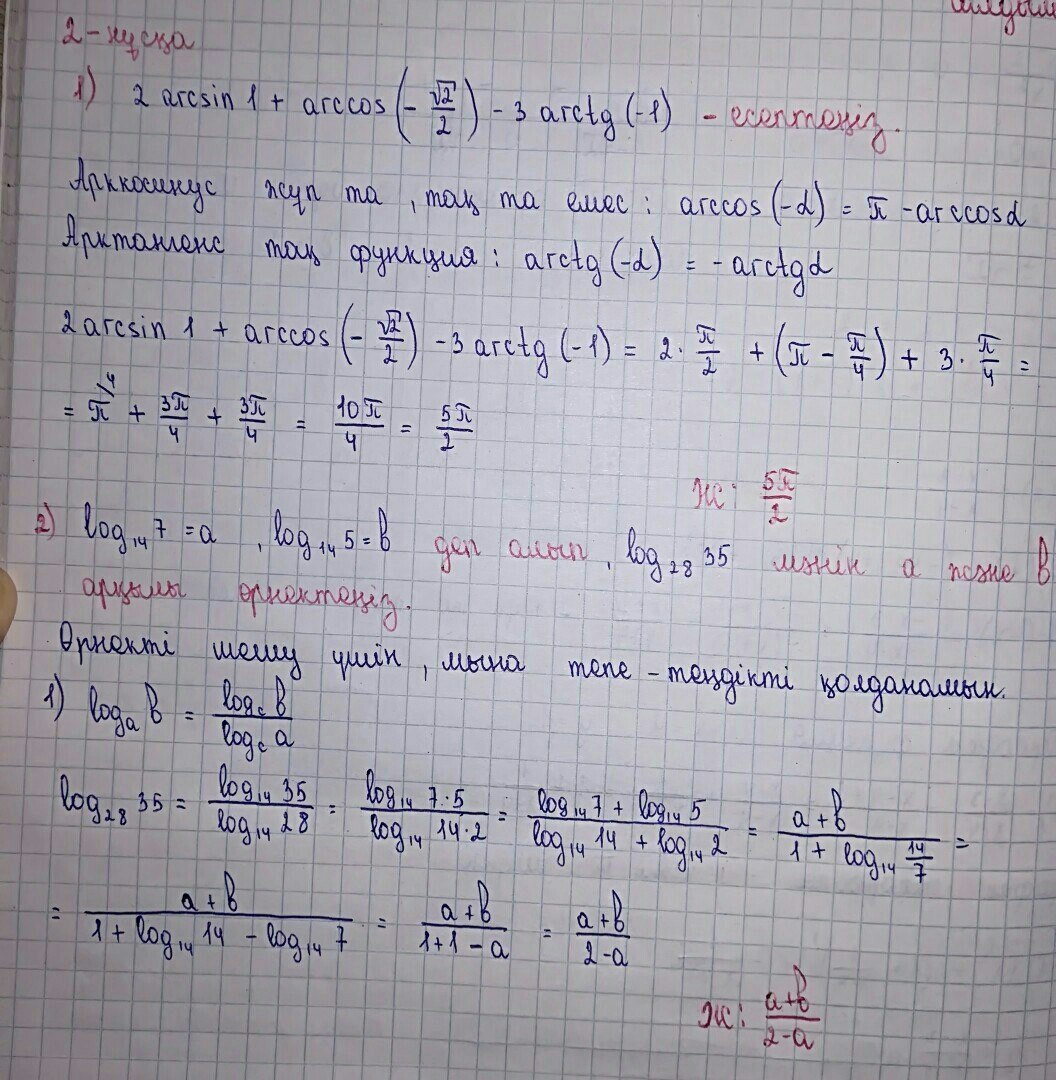 2-нұсқа
1) 2 arcsin 1 + arccos (-√2/2) - 3 arctg (-1) - есептеңіз.
Арккосинус жұп та, тақ та емес: arccos (-α) = π - arccosα
Арктангенс тақ функция: arctg (-α) = -arctgα
2 arcsin 1 + arccos (-√2/2) - 3 arctg (-1) = 2·π/2 + (π - π/4) + 3·π/4 =
= π\4 + 3π/4 + 3π/4 = 10π/4 = 5π/2
Ж: 5π/2
2) log₁₄7 = a, log₁₄5 = b деп алып, log₂₈35 мәнін a және b
арқылы өрнектеңіз.
Өрнекті шешу үшін, мына тепе-теңдікті қолданамын.
1) logₐ b = log_c b / log_c a
log₂₈35 = log₁₄35 / log₁₄28 = log₁₄7·5 / log₁₄14·2 = (log₁₄7 + log₁₄5) / (log₁₄14 + log₁₄2) = (a+b) / (1 + log₁₄ 14/7) =
= (a+b) / (1 + log₁₄14 - log₁₄7) = (a+b) / (1+1-a) = (a+b) / (2-a)
Ж: (a+b) / (2-a)